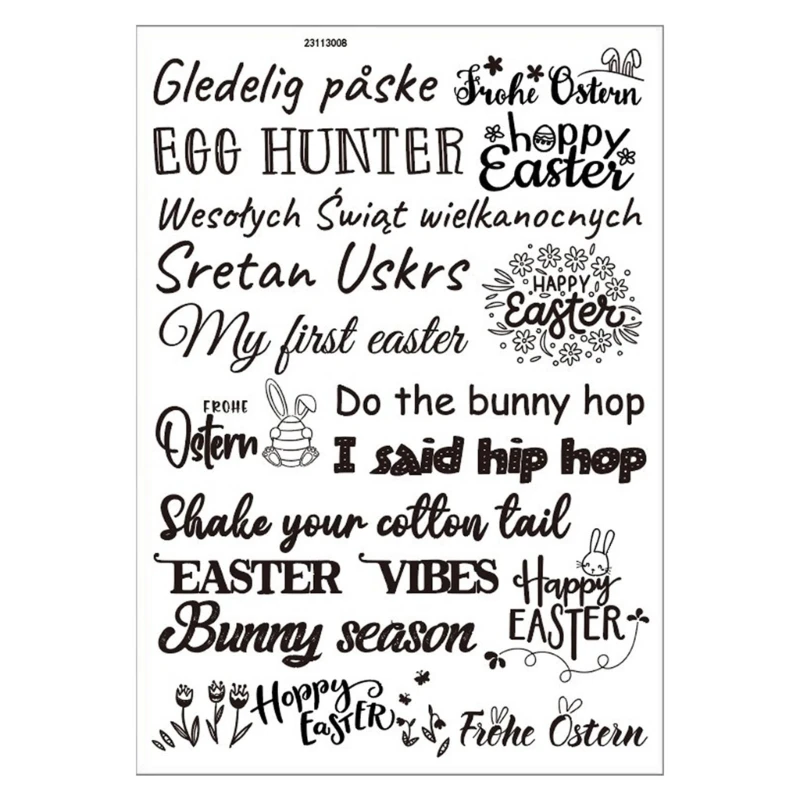 23113008
Gledelig påske
Frohe Ostern
EGG HUNTER
hoppy
Easter
Wesołych Świąt wielkanocnych
Sretan Uskrs
HAPPY
Easter
My first easter
FROHE
Ostern
Do the bunny hop
I said hip hop
Shake your cotton tail
EASTER VIBES
Happy
EASTER
Bunny season
Hoppy
EASTER
Frohe Ostern